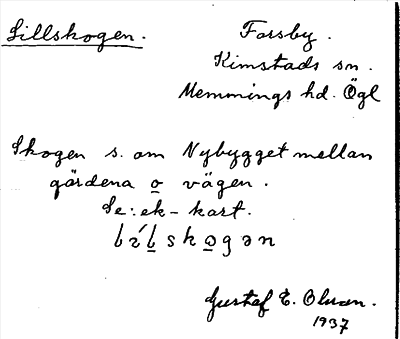 Lillskogen.
Forsby.
Kimstads sn.
Memmings hd. Ögl
Skogen s. om Nybygget mellan
gärdena o vägen.
Se: ek-kart.
Gustaf E. Olsson.
1937